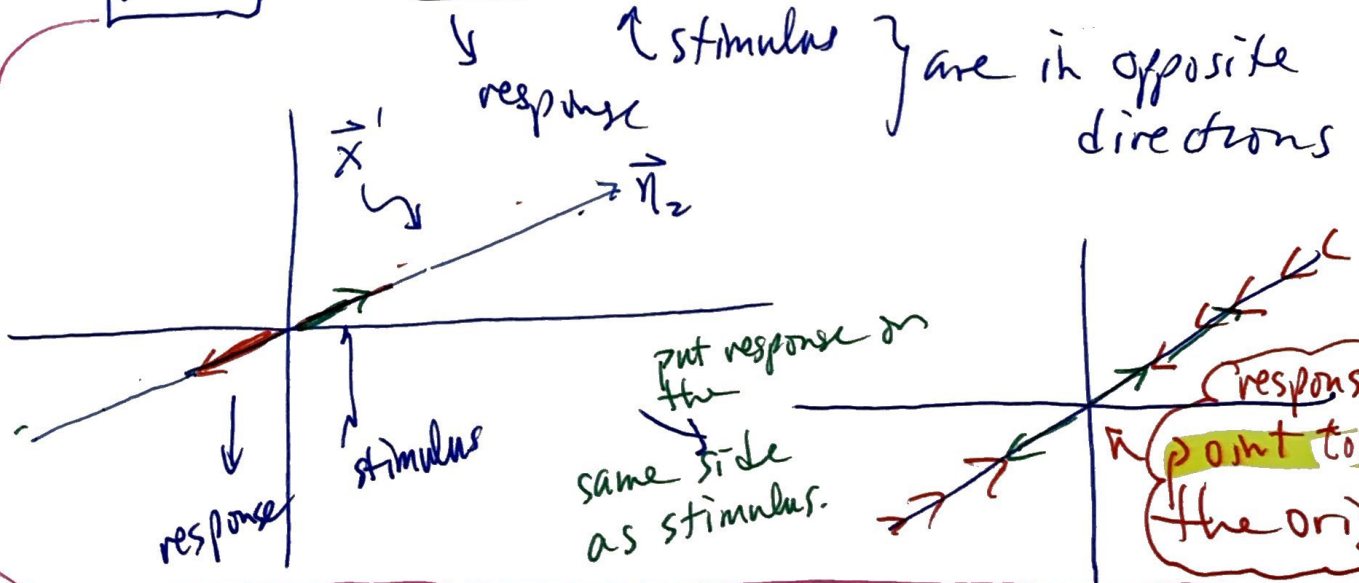 ↑ stimulus } are in opposite
↓ response
directions
x⃗'
η⃗₂
stimulus
response
put response on
the
same side
as stimulus.
respons
point to
the ori